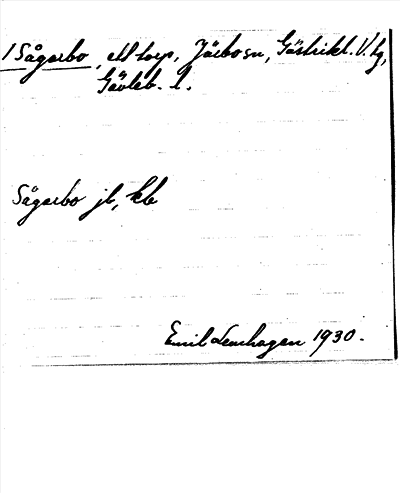 /Sågarbo, ett torp, Järbo sn, Gästrikl. V. tg,
Gävleb. l.
Sågarbo jb, kb
Emil Lenhagen 1930.